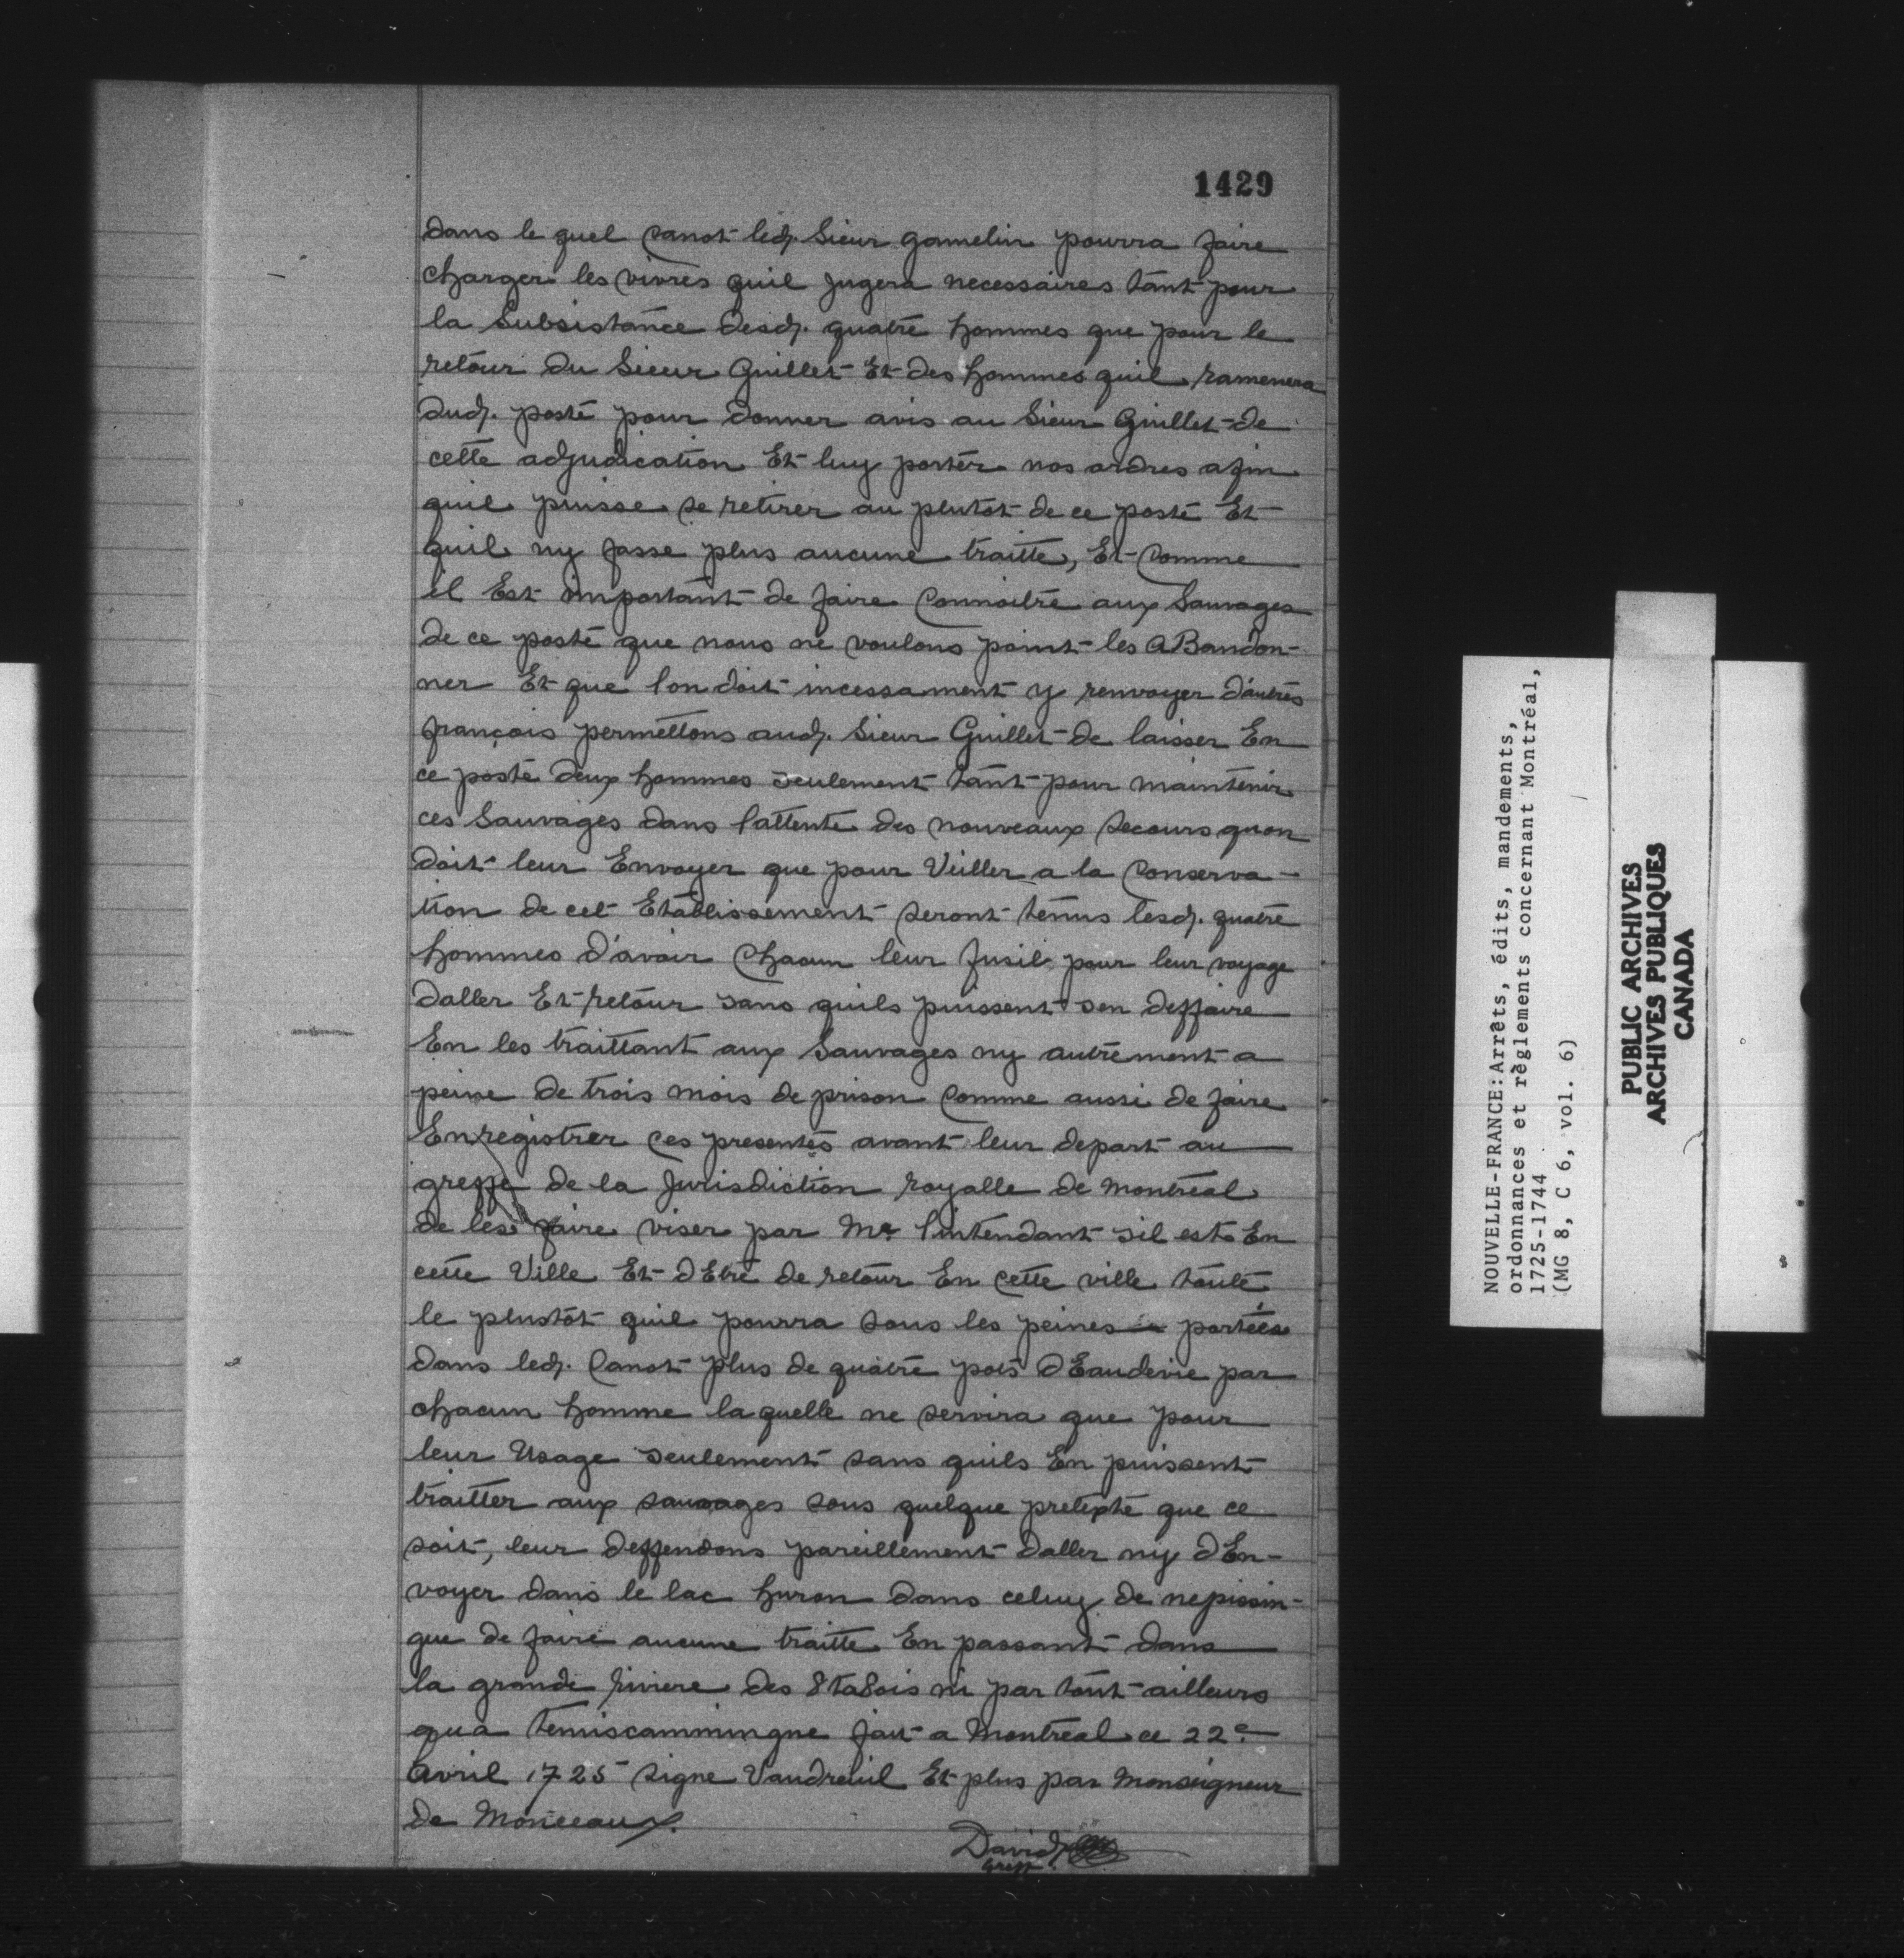 1429
dans le quel Canot led. Sieur gamelin pourra faire
charger les vivres quil Jugera necessaires tant pour
la Subsistance desd. quatre hommes que pour le
retour du Sieur Guillet Et des hommes quil ramenera
dud. poste pour donner avis au Sieur Guillet de
cette adjudication Et luy porter nos ordres afin
quil puisse se retirer au plutot de ce poste Et
quil ny fasse plus aucune traitte, Et Comme
il Est important de faire Connoitre aux Sauvages
de ce poste que nous ne voulons point les aBandon-
ner Et que lon doit incessament y renvoyer d'autres
françois permettons aud. Sieur Guillet de laisser En
ce poste deux hommes seulement tant pour maintenir
ces Sauvages dans l'attente des nouveaux secours quon
doit leur Envoyer que pour Veiller a la Conserva-
tion de cet Etablissement seront tenus lesd. quatre
hommes d'avoir Chacun leur fusil pour leur voyage
daller Et retour sans quils puissent sen deffaire
En les traittant aux Sauvages ny autrement a
peine de trois mois de prison Comme aussi de faire
Enregistrer ces presentes avant leur depart au
greffe de la Jurisdiction royalle de Montreal
de les faire viser par Mr. l'intendant sil est En
cette Ville Et dEtre de retour En cette ville toute
le plustôt quil pourra sous les peines portées
dans led. Canot plus de quatre pots dEaudevie par
chacun homme laquelle ne servira que pour
leur Usage seulement sans quils En puissent
traitter aux sauvages sous quelque pretexte que ce
soit, leur deffendons pareillement daller ny dEn-
voyer dans le lac huron dans celuy de nepissin-
gue de faire aucune traitte En passant dans
la grande riviere des 8ta8ois ni par tout ailleurs
qua temiscammingue fait a Montreal ce 22e.
avril 1725 signe Vaudreuil Et plus par Monseigneur
de Monceaux.
David
Greff.
NOUVELLE-FRANCE: Arrêts, édits, mandements,
ordonnances et règlements concernant Montréal,
1725-1744
(MG 8, C 6, vol. 6)
PUBLIC ARCHIVES
ARCHIVES PUBLIQUES
CANADA